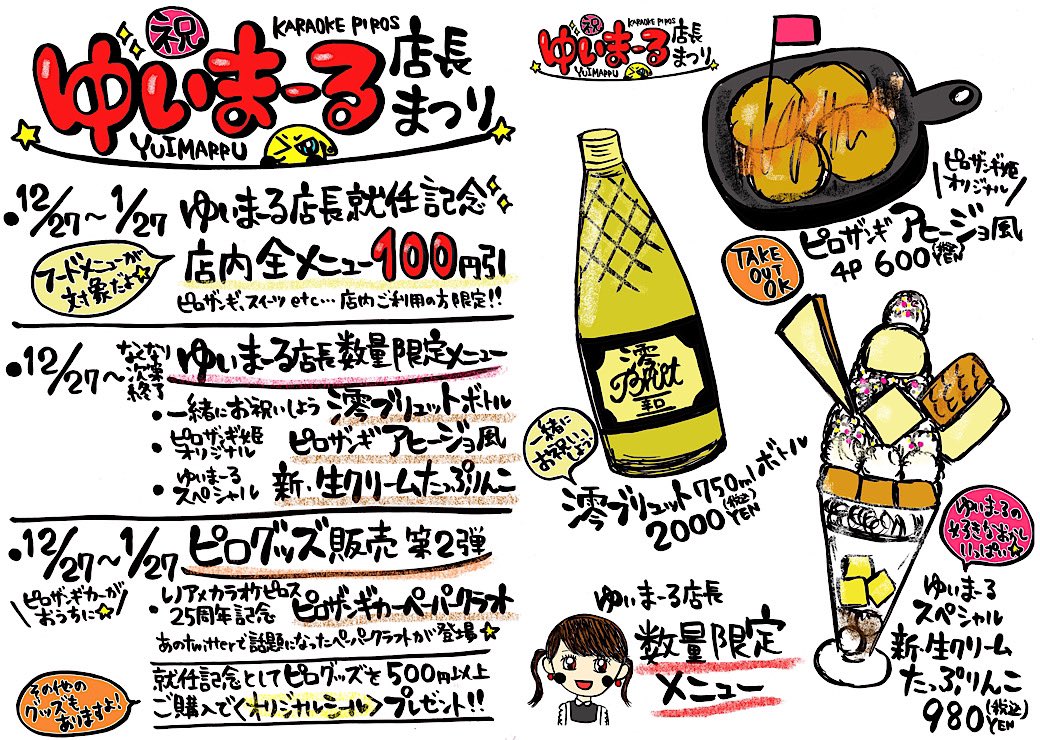 祝
KARAOKE PIROS
ゆいまーる
店長
まつり
YUIMARRU
•12/27〜1/27 ゆいまーる店長就任記念
フードメニューが
対象だよ
店内全メニュー100円引
ピロザンギ、スイーツetc…店内ご利用の方限定!!
•12/27〜
なくなり
次第
終了
ゆいまーる店長数量限定メニュー
•一緒にお祝いしよう 澪ブリュットボトル
•ピロザンギ姫
オリジナル
ピロザンギアヒージョ風
•ゆいまーる
スペシャル
新・生クリームたっぷりんこ
•12/27〜1/27 ピログッズ販売 第2弾
ピロザンギカーが
おうちに
•レノアメカラオケピロス
25周年記念
ピロザンギカーペーパークラフト
あのTwitterで話題になったペーパークラフトが登場
その他の
グッズも
ありますよ!
就任記念としてピログッズを500円以上
ご購入で<オリジナルシール>プレゼント!!
祝
KARAOKE PIROS
ゆいまーる
店長
まつり
YUIMARRU
ピロザンギ姫
オリジナル
ピロザンギアヒージョ風
4P 600(税込)YEN
TAKE
OUT
OK
澪
Brut
辛口
一緒に
お祝い
しよう
澪ブリュット750mlボトル
2000(税込)YEN
ゆいまーるの
好きなおかし
いっぱい
ゆいまーる
スペシャル
新・生クリーム
たっぷりんこ
980(税込)YEN
ゆいまーる店長
数量限定
メニュー